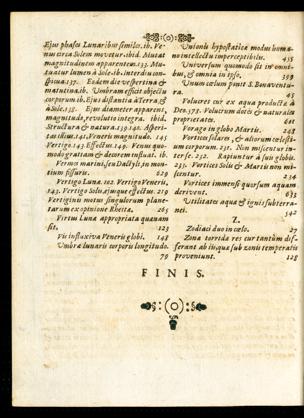 Ejus phases Lunaribus similes. ib. Ve-
nus circa Solem movetur. ibid. Mutat
magnitudinem apparentem. 133. Mu-
tuatur lumen à Sole. ib. interdiu con-
spicua. 137. Eadem die vespertina &
matutina. ib. Umbram efficit objectu
corporum. ib. Ejus distantia à Terra, &
à Sole. 138. Ejus diameter apparens,
magnitudo, revolutio integra. ibid.
Structura & natura. 139. 140. Asperi-
tas illius. 141. Veneris magnitudo. 145
Vertigo. 143 Effectus. 149. Venus quo-
modo gratiam & decorem influat. ib.
Vermes marini, seu Dactyli, in mon-
tium fissuris. 629
Vertigo Lunæ. 102. Vertigo Veneris,
143. Vertigo Solis, ejusque effectus. 219
Vertiginis motus singulorum plane-
tarum ex opinione Rheita. 265
Virtus Lunæ appropriata quænam
sit. 123
Vis influxiva Veneris globi. 148
Umbræ lunaris corporis longitudo.
79
Unionis hypostaticæ modus huma-
no intellectu imperceptibilis. 435
Universum quomodo sit in omni-
bus, & omnia in ipso. 399
Unum cælum ponit S. Bonaventu-
ra. 45
Volucres cur ex aqua productæ à
Deo. 377. Volucrum dotes & naturales
proprietates. 641
Vorago in globo Martis. 248
Vortices solares, & aliorum cælesti-
um corporum. 231. Non miscentur in-
terse. 232. Rapiuntur à suis globis.
233. Vortices Solis & Martis non mi-
scentur. 234
Vortices immensi quorsum aquam
derivent. 632
Utilitates aquæ & ignis subterra-
nei. 542
Z.
Zodiaci duo in cælo. 27
Zona torrida res cur tantum dif-
ferant ab iis quæ sub zonis temperatis
proveniunt. 128
FINIS.